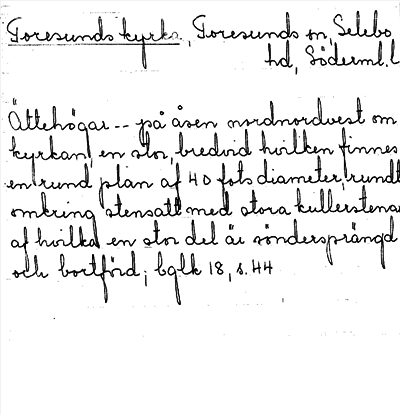 Toresunds kyrka, Toresunds sn, Selebo
hd, Söderml. l
Ättehögar -- på åsen nordnordvest om
kyrkan, en stor, bredvid hvilken finnes
en rund plan af 40 fots diameter, rundt
omkring stensatt med stora kullerstenar
af hvilka en stor del är söndersprängd
och bortförd; bglk 18, s. 44